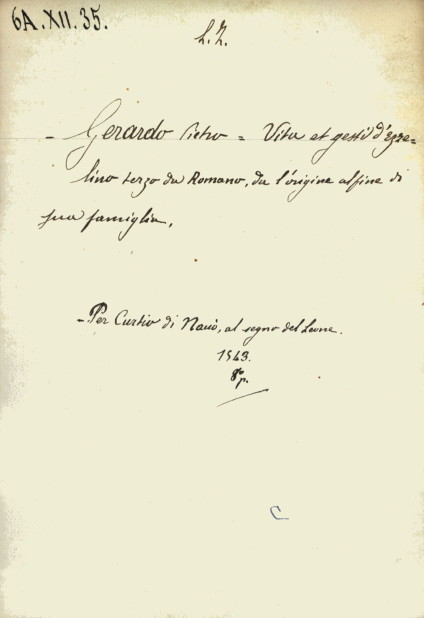 6A.XII.35.
L.Z.
- Gerardo Pietro = Vita et gesti d'Ezze-
lino terzo da Romano, da l'origine al fine di
sua famiglia,
- Per Curtio di Navò, al segno del Leone.
1543.
8º p.
C